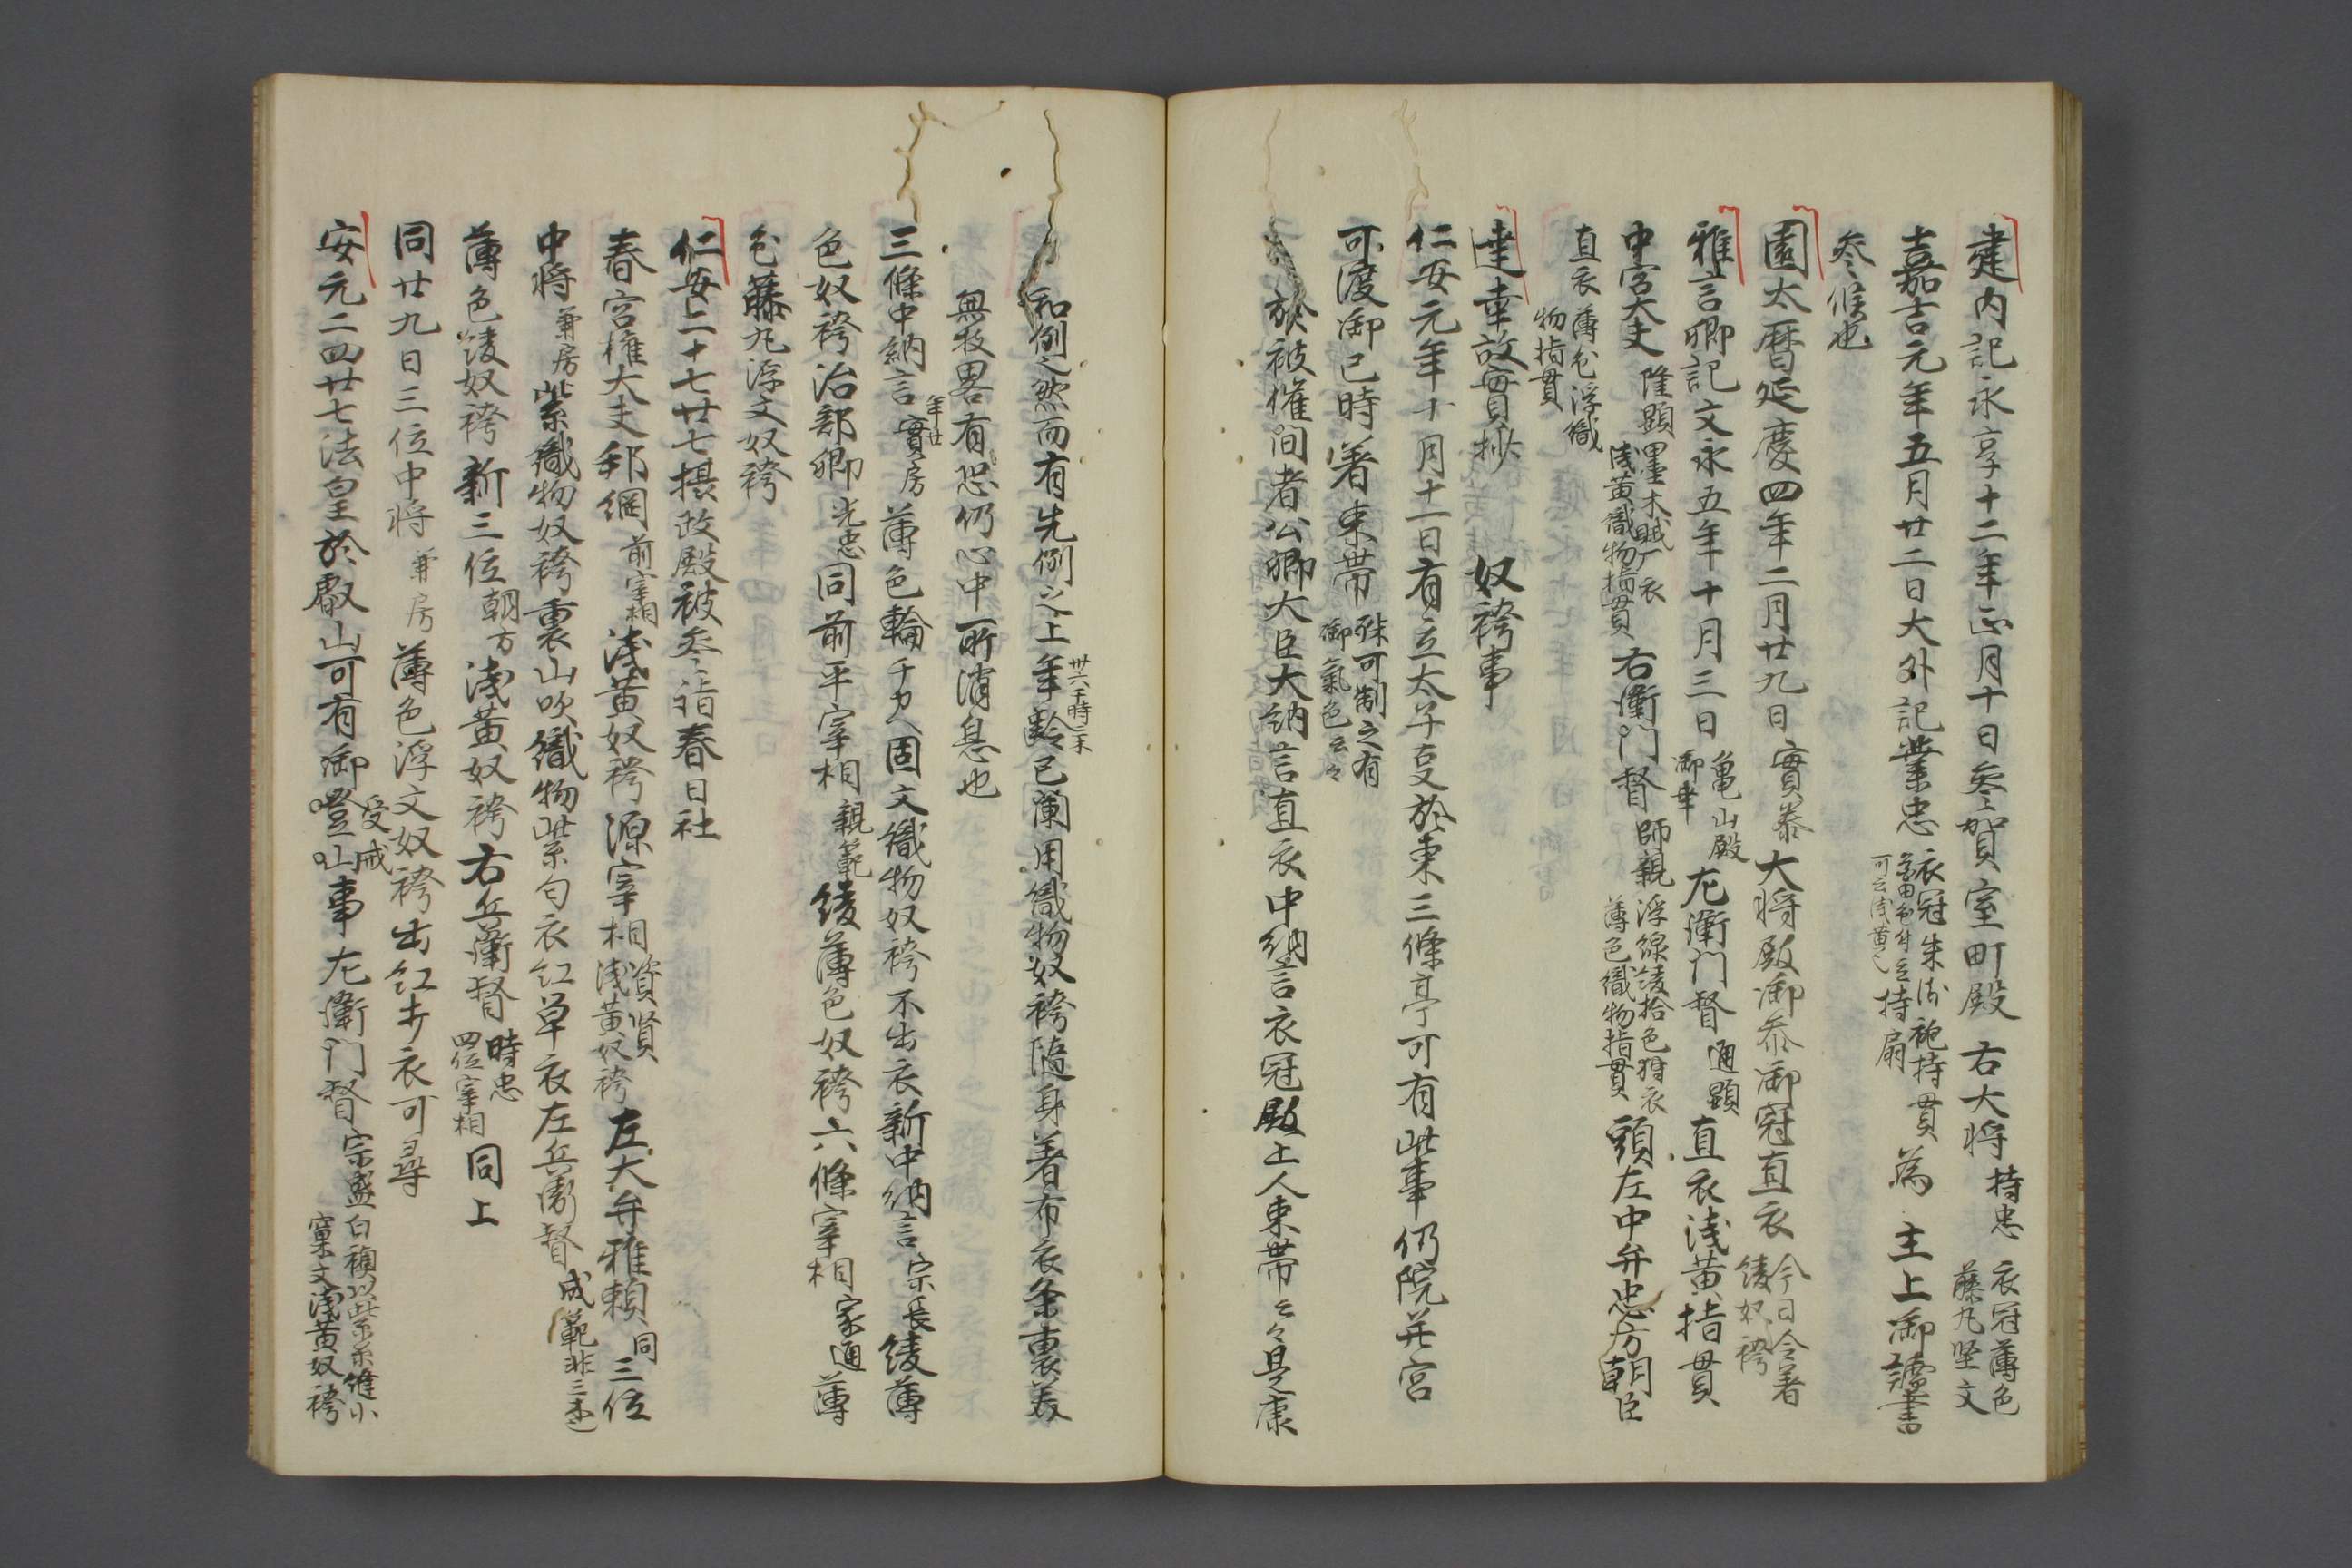 建内記永享十二年正月十日参賀室町殿右大将持忠 衣冠薄色藤丸堅文
嘉吉元年五月廿二日大外記業忠 衣冠 持扇 為 主上御読書
参候也
園太暦延慶四年二月廿九日實泰大将殿御参御冠直衣 今日令著綾奴袴
雅言卿記文永五年十月三日 亀山殿御幸 左衛門督通顕直衣浅黄指貫
中宮大夫隆顕 浅黄織物指貫 右衛門督師親 浮線綾 色狩衣薄色織物指貫 頭左中弁忠方朝臣
直衣 薄色浮織物指貫
達幸故實抄 奴袴事
仁安元年十月十一日有立太子事於東三條亭可有此事仍院并宮
可渡御已時着束帯 殊可制之有御氣色云々
於被催間者公卿大臣大納言直衣中納言衣冠殿上人束帯云々是康
和例之然而有先例之上年齢已闌用織物奴袴随身着布衣条裏美
無牧畧有恐仍心中所消息也
三條中納言 年廿 實房薄色輪千 固文織物奴袴不出衣新中納言宗長綾薄
色奴袴治部卿光忠同前平宰相親範綾薄色奴袴六條宰相家通薄
色藤丸浮文奴袴
仁安二十七廿七摂政殿被参詣春日社
春宮権大夫邦綱 前宰相 浅黄奴袴源宰相資賢 浅黄奴袴 左大弁雅頼 同 三位
中将兼房紫織物奴袴裏山吹織物紫匂衣紅単衣左兵衛督成範
薄色綾奴袴新三位朝方浅黄奴袴右兵衛督時忠 四位宰相 同上
同廿九日三位中将兼房薄色浮文奴袴出紅打衣可尋
安元二四廿七法皇於叡山可有御 受戒 登山事左衛門督宗盛 白襖以紫糸縫小窠文浅黄奴袴